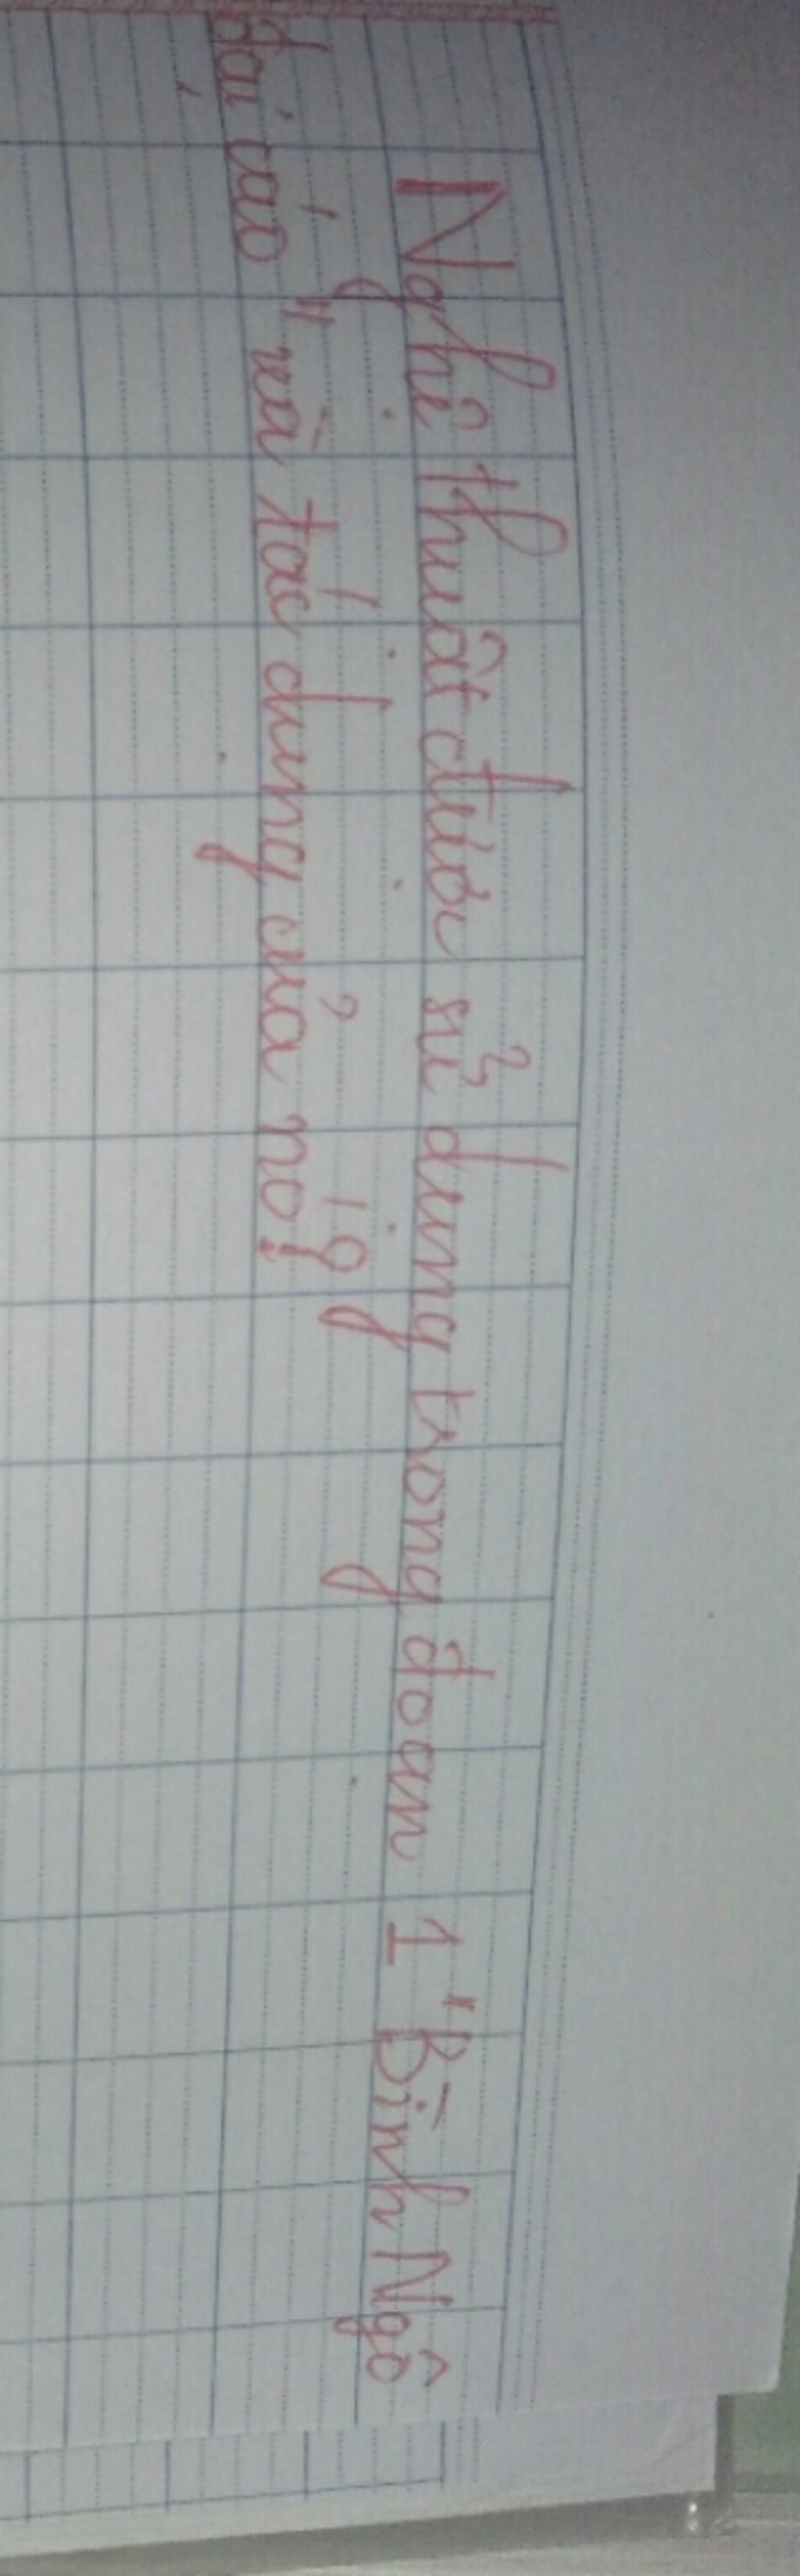 Nghệ thuật được sử dụng trong đoạn 1 "Bình Ngô
đại cáo" và tác dụng của nó?